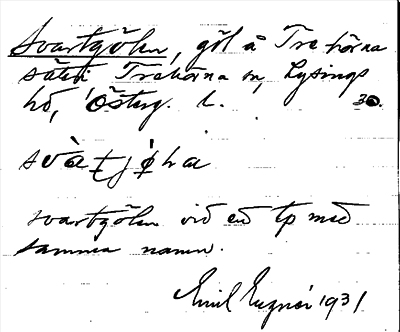 Svartgölen, göl å Trehörna
säteri Trehörna sn, Lysings
hd, Österg. l. 30.
svà̱ṯjø̀ḷa
svartgölen vid ett tp med
samma namn.
Emil 1931